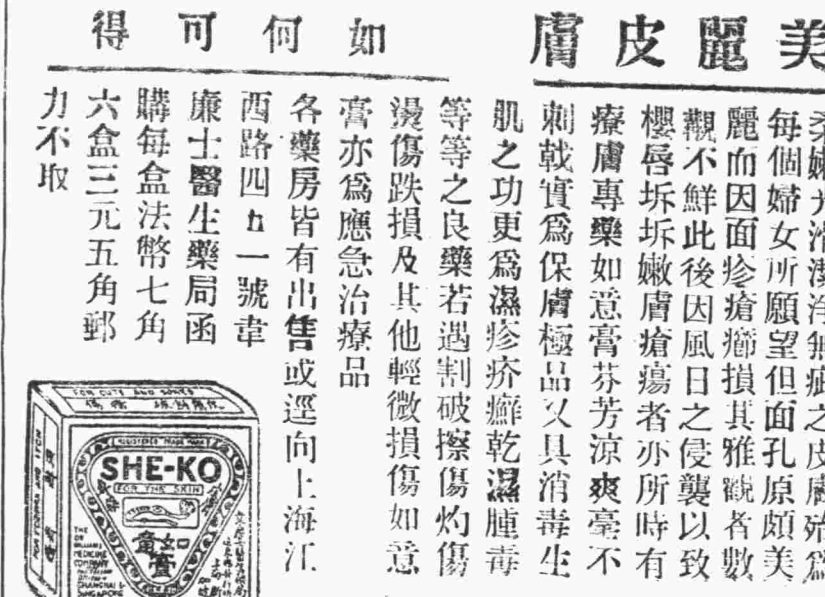 美麗皮膚
如何可得
柔嫩光滑潔淨無疵之皮膚殆爲
每個婦女所願望但面孔原頗美
麗而因面疹瘡癤損其雅觀者數
觀不鮮此後因風日之侵襲以致
櫻唇坼坼嫩膚瘡瘍者亦所時有
療膚專藥如意膏芬芳涼爽毫不
刺戟實爲保膚極品又具消毒生
肌之功更爲濕疹疥癬乾濕腫毒
等等之良藥若遇割破擦傷灼傷
燙傷跌損及其他輕微損傷如意
膏亦爲應急治療品
各藥房皆有出售或逕向上海江
西路四五一號韋
廉士醫生藥局函
購每盒法幣七角
六盒三元五角郵
力不取
FOR CUTS AND SORES
REGISTERED TRADE MARK
SHE-KO
FOR THE SKIN
如意膏
THE
DR
WILLIAMS
MEDICINE
COMPANY
SHANGHAI &
SINGAPORE